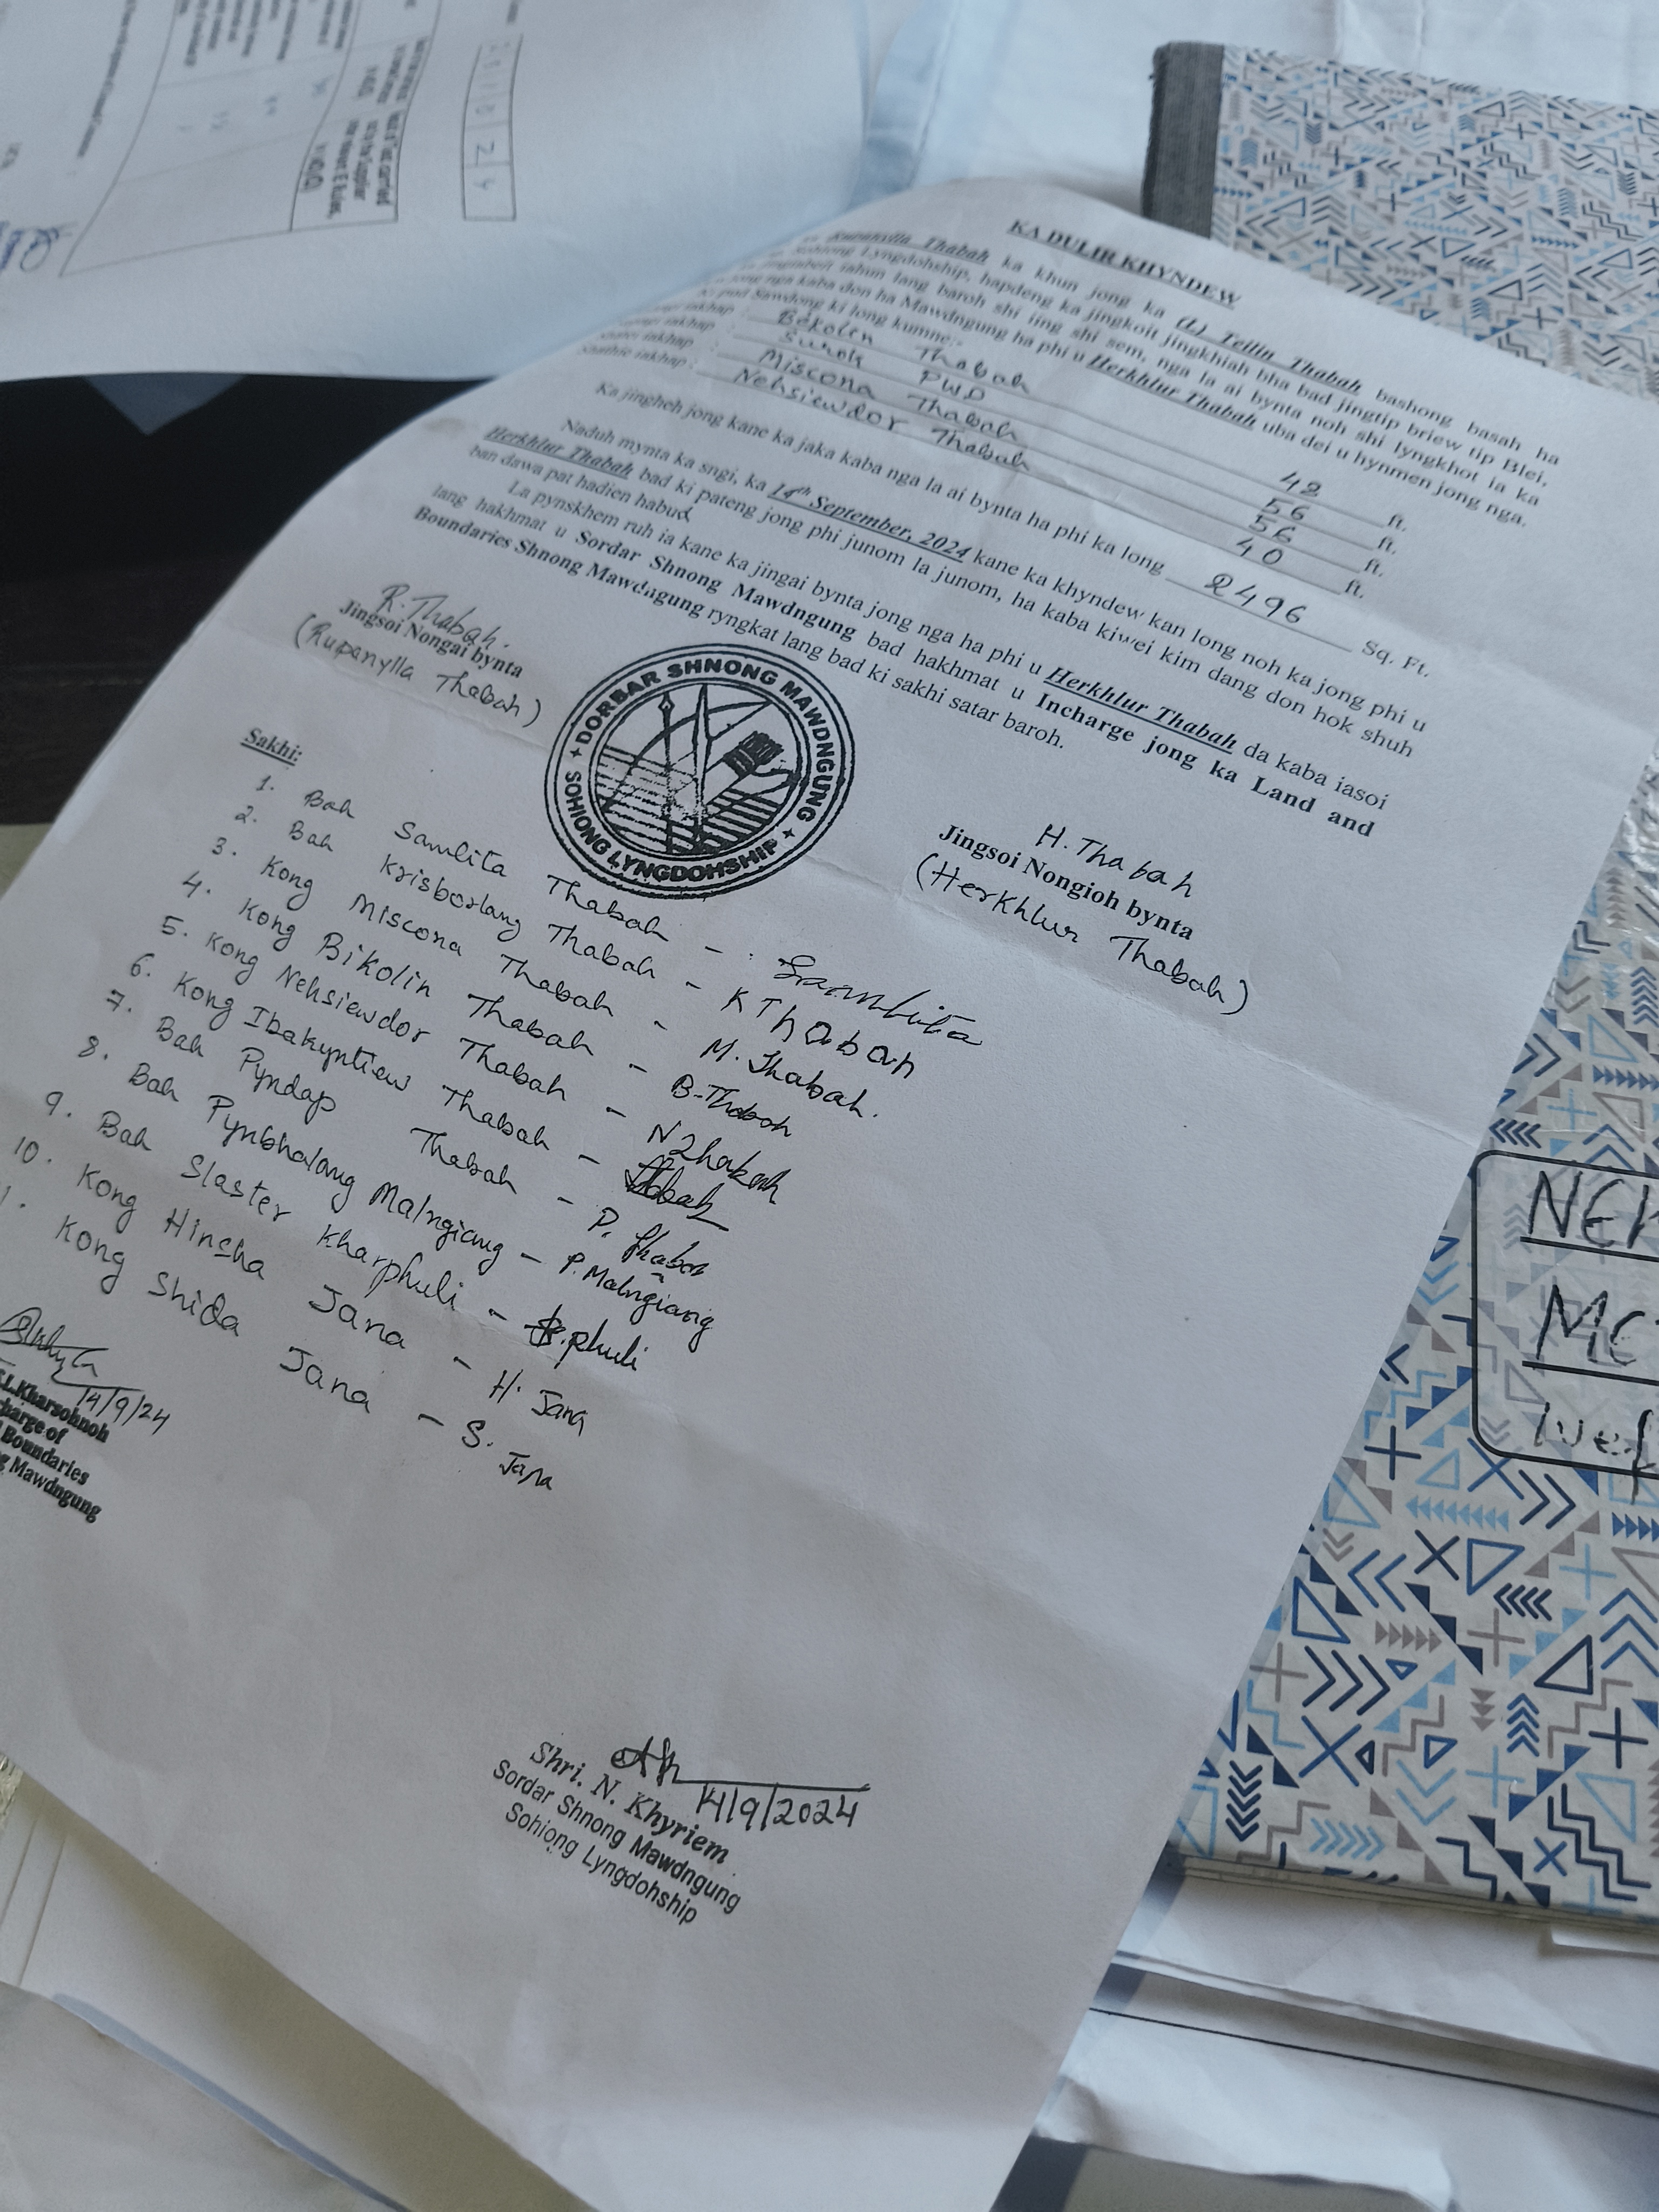 KA DULIR KHYNDEW
Rupanylla Thabah ka khun jong ka (L) Tellin Thabah bashong basah ha
Sohiong Lyngdohship, hapdeng ka jingkoit jingkhiah bha bad jingtip briew tip Blei,
lang baroh shi iing shi sem, nga la ai bynta noh shi lyngkhot ia ka
jong nga kaba don ha Mawdngung ha phi u Herkhlur Thabah uba dei u hynmen jong nga.
Ki pud Sawdong ki long kumne:-
sakhap : Bekolin Thabah 42 ft.
sakhap : Surok PWD 56 ft.
sakhap : Miscona Thabah 56 ft.
sakhap : Nehsiewdor Thabah 40 ft.
Ka jingheh jong kane ka jaka kaba nga la ai bynta ha phi ka long 2496 Sq. Ft.
Naduh mynta ka sngi, ka 14th September, 2024 kane ka khyndew kan long noh ka jong phi u
Herkhlur Thabah bad ki pateng jong phi junom la junom, ha kaba kiwei kim dang don hok shuh
ban dawa pat hadien habud
La pynskhem ruh ia kane ka jingai bynta jong nga ha phi u Herkhlur Thabah da kaba iasoi
lang hakhmat u Sordar Shnong Mawdngung bad hakhmat u Incharge jong ka Land and
Boundaries Shnong Mawdngung ryngkat lang bad ki sakhi satar baroh.
R. Thabah.
Jingsoi Nongai bynta
(Rupanylla Thabah)
DORBAR SHNONG MAWDNGUNG
SOHIONG LYNGDOHSHIP
H. Thabah
Jingsoi Nongioh bynta
(Herkhlur Thabah)
Sakhi:
1. Bah Samlita Thabah -
2. Bah Krisborlang Thabah - K Thabah
3. Kong Miscona Thabah - M. Thabah.
4. Kong Bikolin Thabah - B-Thabah
5. Kong Nehsiewdor Thabah -
6. Kong Ibakyntiew Thabah - Thabah
7. Bah Pyndap Thabah - P. Thabah
8. Bah Pynbhalang Malngiang - P. Malngiang
9. Bah Slaster Kharphuli - phuli
10. Kong Hinsha Jana - H. Jana
Kong Shida Jana - S. Jana
14/9/24
L.Kharsohnoh
charge of
Boundaries
Mawdngung
14/9/2024
Shri. N. Khyriem
Sordar Shnong Mawdngung
Sohiong Lyngdohship